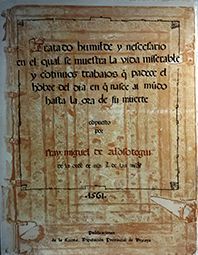 Tratado humilde y nescesario
en el qual se muestra la vida miserable
y cōtinuos trabajos q̄ padece el
hōbre del dia en q̄ nasce al mūdo
hasta la ora de su muerte
cōpuesto
por
fray miguel de alōsotegui
de la orde de
1561.
Publicaciones
de la Excma. Diputación Provincial de Vizcaya